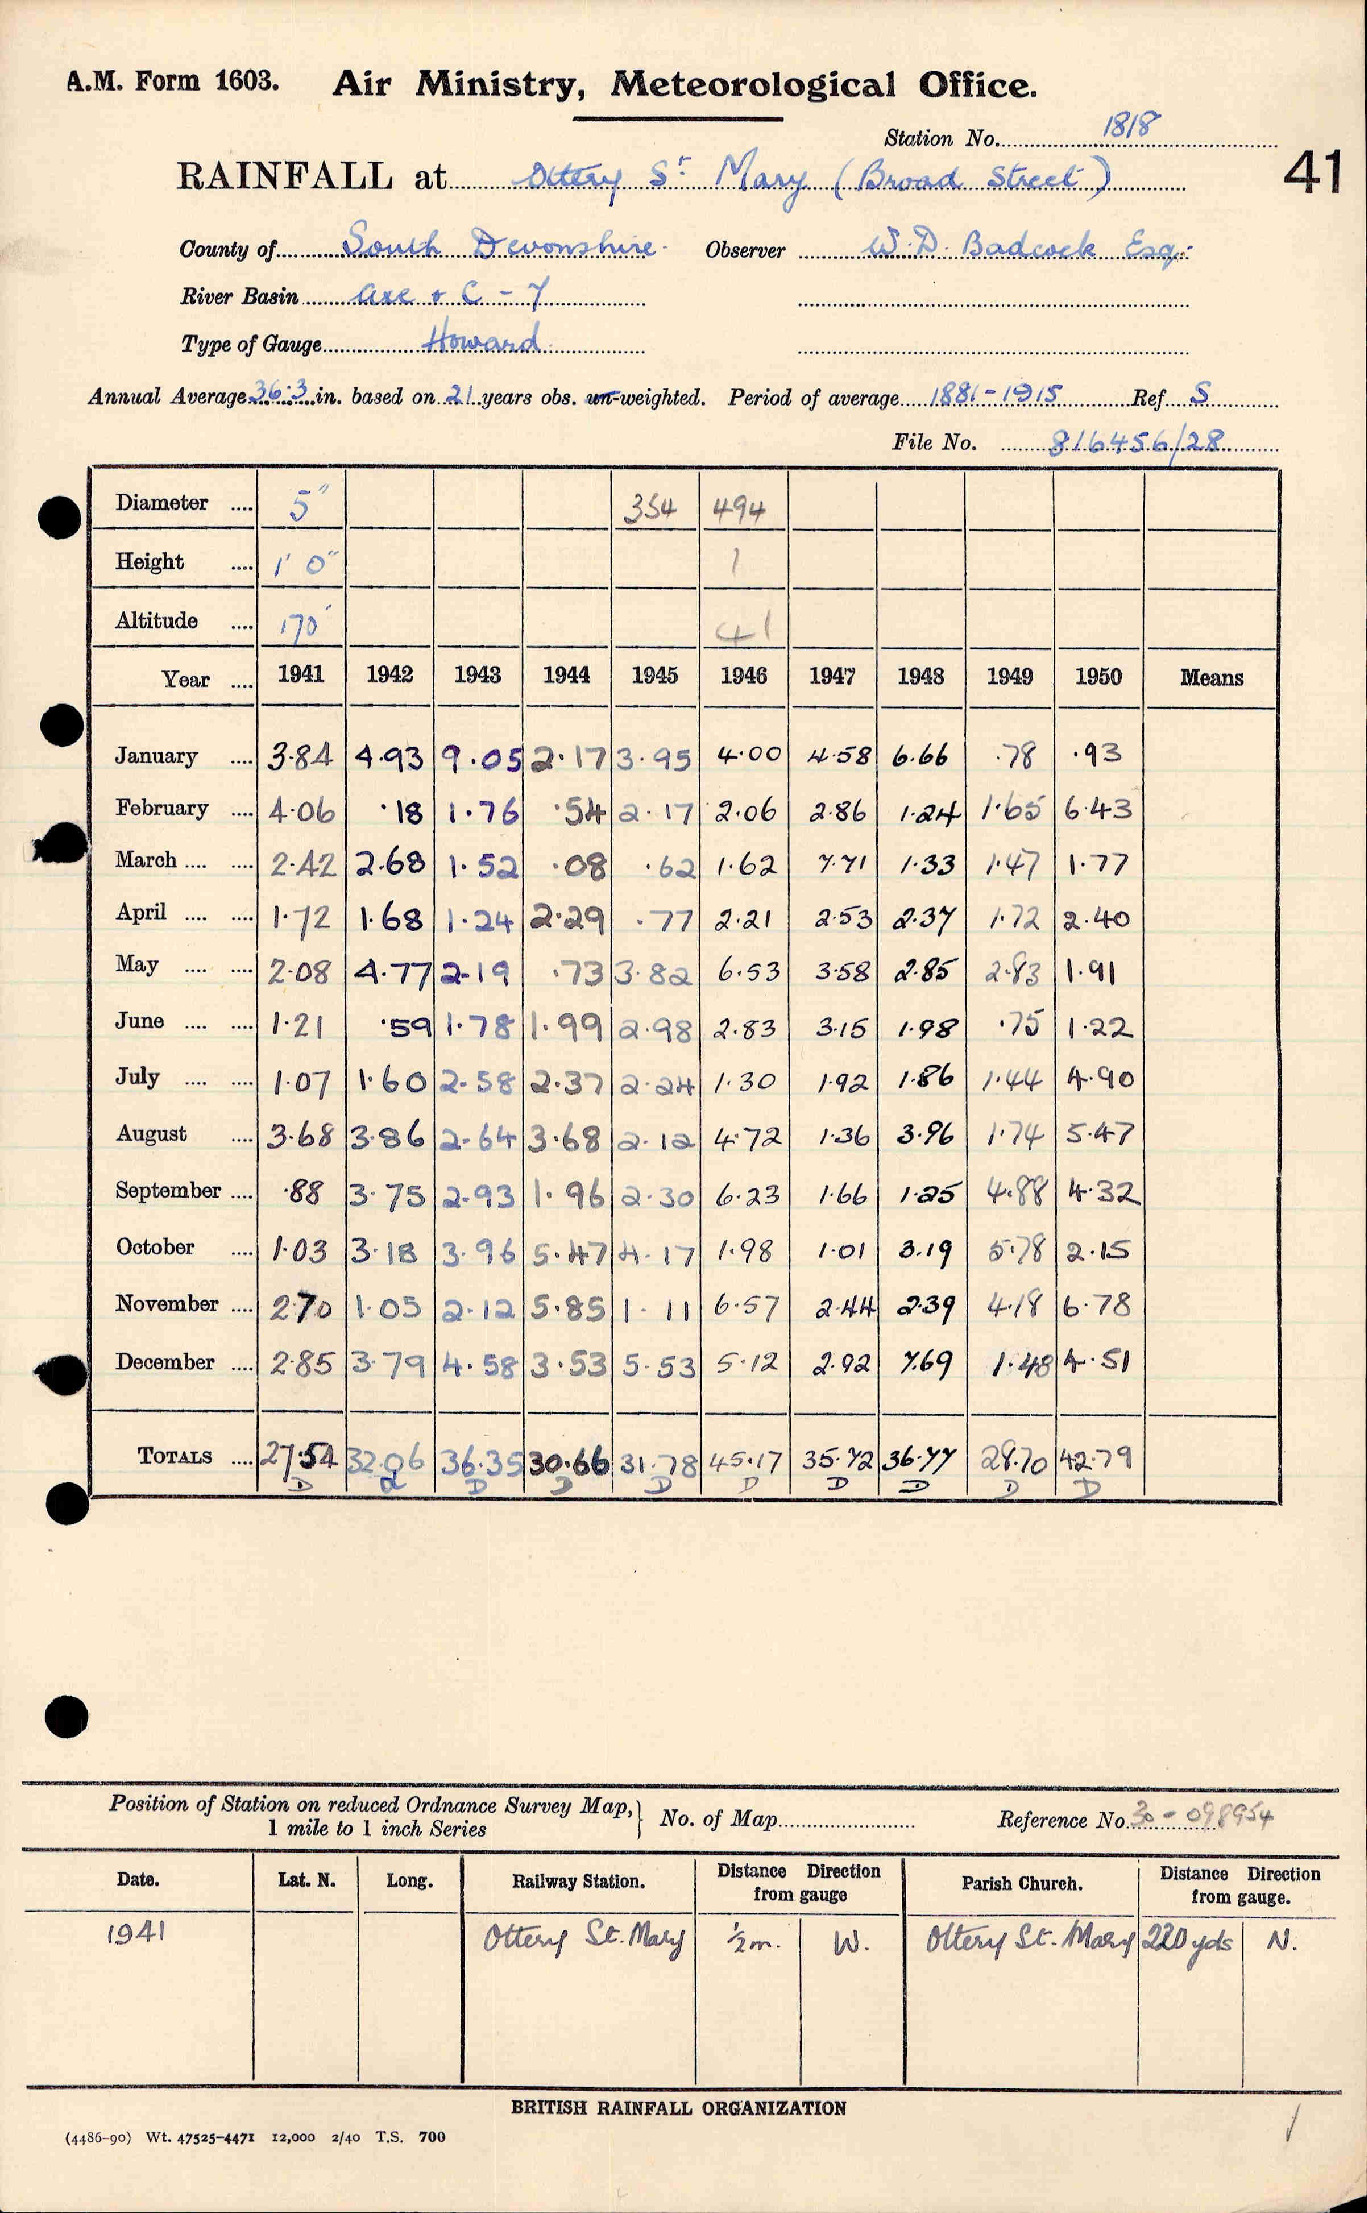 A.M. Form 1603. Air Ministry, Meteorological Office.
Station No. 1818
41
RAINFALL at Ottery St Mary (Broad Street)
County of South Devonshire. Observer W. D. Badcock Esq.
River Basin Axe & C - 7
Type of Gauge Howard
Annual Average 36.3 in. based on 21 years obs. un-weighted. Period of average 1881-1915 Ref S
File No. 816456/28
Diameter .... 5" 354 494
Height .... 1' 0" 1
Altitude .... 170' 41
Year .... 1941 1942 1943 1944 1945 1946 1947 1948 1949 1950 Means
January .... 3.84 4.93 9.05 2.17 3.95 4.00 4.58 6.66 .78 .93
February .... 4.06 .18 1.76 .54 2.17 2.06 2.86 1.24 1.65 6.43
March .... .... 2.42 2.68 1.52 .08 .62 1.62 7.71 1.33 1.47 1.77
April .... .... 1.72 1.68 1.24 2.29 .77 2.21 2.53 2.37 1.72 2.40
May .... .... 2.08 4.77 2.19 .73 3.82 6.53 3.58 2.85 2.83 1.91
June .... .... 1.21 .59 1.78 1.99 2.98 2.83 3.15 1.98 .75 1.22
July .... .... 1.07 1.60 2.58 2.37 2.24 1.30 1.92 1.86 1.44 4.90
August .... 3.68 3.86 2.64 3.68 2.12 4.72 1.36 3.96 1.74 5.47
September .... .88 3.75 2.93 1.96 2.30 6.23 1.66 1.25 4.88 4.32
October .... 1.03 3.18 3.96 5.47 4.17 1.98 1.01 3.19 5.78 2.15
November .... 2.70 1.05 2.12 5.85 1.11 6.57 2.44 2.39 4.18 6.78
December .... 2.85 3.79 4.58 3.53 5.53 5.12 2.92 7.69 1.48 4.51
TOTALS .... 27.54 32.06 36.35 30.66 31.78 45.17 35.72 36.77 28.70 42.79
D D D D D D D D D
Position of Station on reduced Ordnance Survey Map, } No. of Map Reference No. 30-098954
1 mile to 1 inch Series
Date. Lat. N. Long. Railway Station. Distance Direction from gauge Parish Church. Distance Direction from gauge.
1941 Ottery St. Mary ½m. W. Ottery St. Mary 220 yds N.
BRITISH RAINFALL ORGANIZATION
(4486-90) Wt. 47525-4471 12,000 2/40 T.S. 700